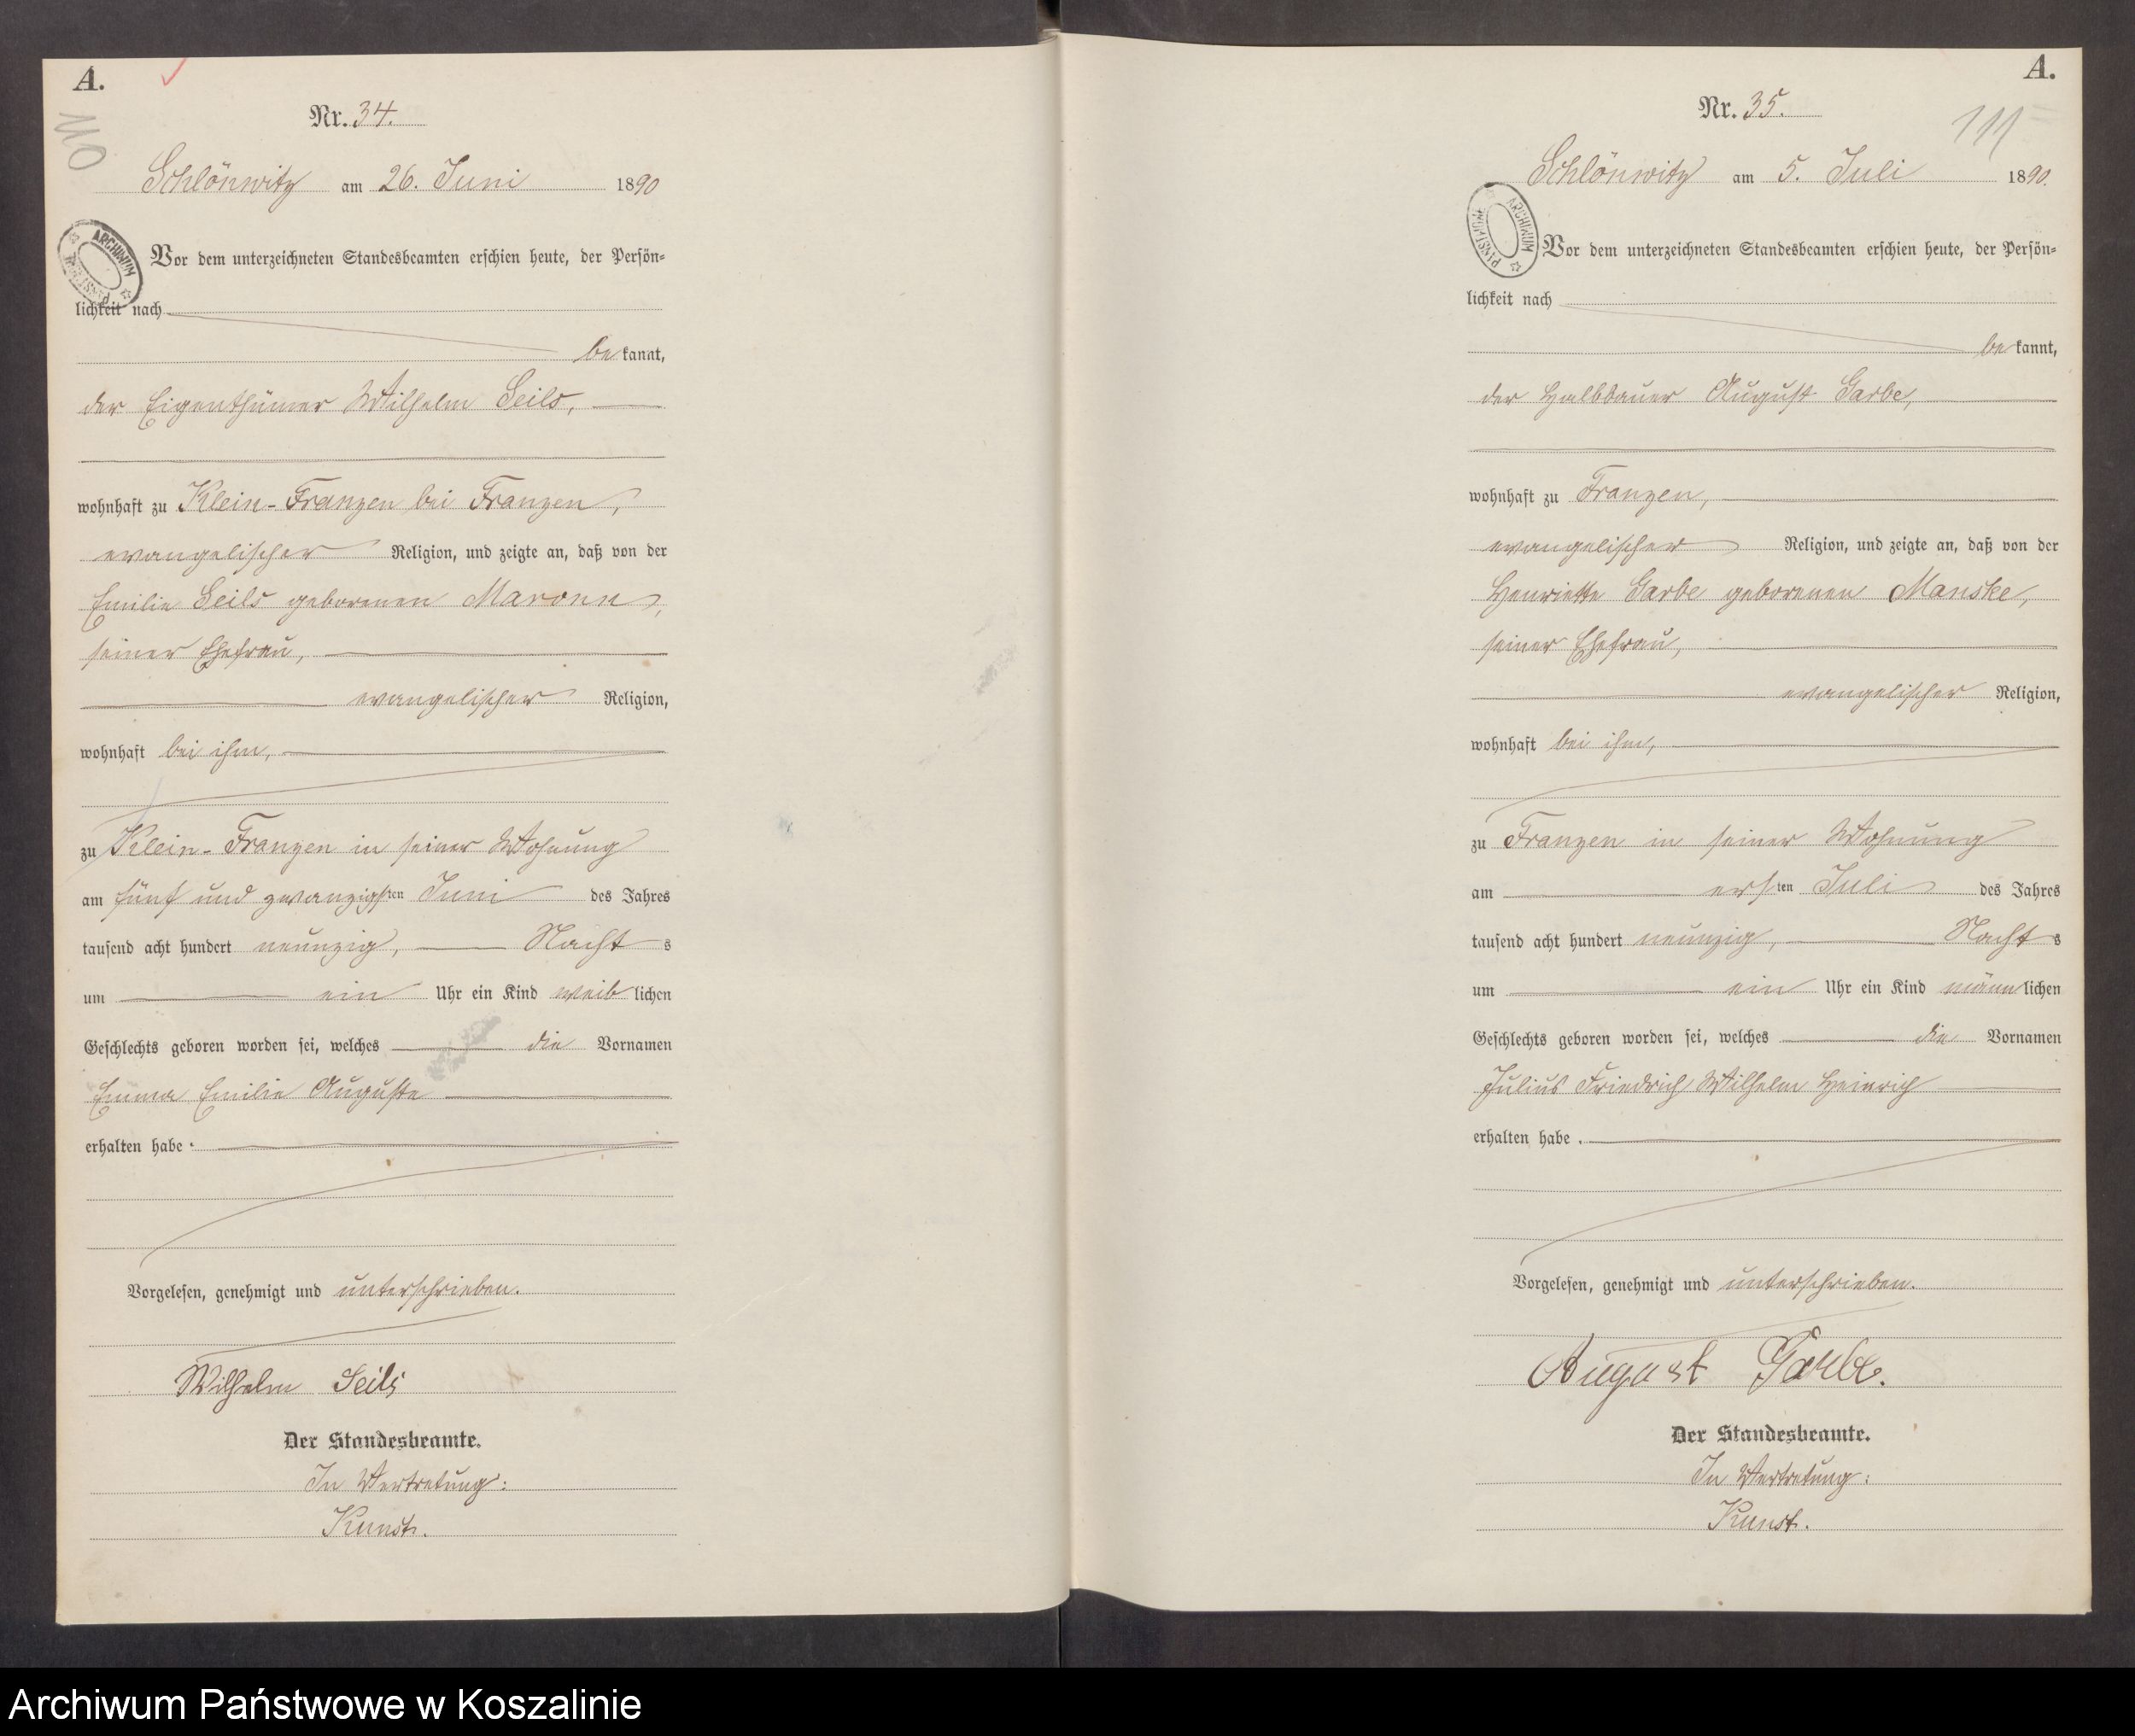 A.
110
Nr. 34.
Schlönwitz am 26. Juni 1890
ARCHIWUM PAŃSTWOWE
Vor dem unterzeichneten Standesbeamten erschien heute, der Persön-
lichkeit nach
bekannt,
der Eigenthümer Wilhelm Seils,
wohnhaft zu Klein-Franzen bei Franzen,
evangelischer Religion, und zeigte an, daß von der
Emilie Seils geborenen Maronn,
seiner Ehefrau,
evangelischer Religion,
wohnhaft bei ihm,
zu Klein-Franzen in seiner Wohnung
am fünf und zwanzigsten Juni des Jahres
tausend acht hundert neunzig, Nachts
um ein Uhr ein Kind weiblichen
Geschlechts geboren worden sei, welches die Vornamen
Emma Emilie Auguste
erhalten habe.
Vorgelesen, genehmigt und unterschrieben.
Wilhelm Seils
Der Standesbeamte.
In Vertretung:
Kunst.
A.
111
Nr. 35.
Schlönwitz am 5. Juli 1890.
ARCHIWUM PAŃSTWOWE
Vor dem unterzeichneten Standesbeamten erschien heute, der Persön-
lichkeit nach
bekannt,
der Halbbauer August Garbe,
wohnhaft zu Franzen,
evangelischer Religion, und zeigte an, daß von der
Henriette Garbe geborenen Manske,
seiner Ehefrau,
evangelischer Religion,
wohnhaft bei ihm,
zu Franzen in seiner Wohnung
am ersten Juli des Jahres
tausend acht hundert neunzig, Nachts
um ein Uhr ein Kind männlichen
Geschlechts geboren worden sei, welches die Vornamen
Julius Friedrich Wilhelm Heinrich
erhalten habe.
Vorgelesen, genehmigt und unterschrieben.
August Garbe.
Der Standesbeamte.
In Vertretung:
Kunst.
Archiwum Państwowe w Koszalinie